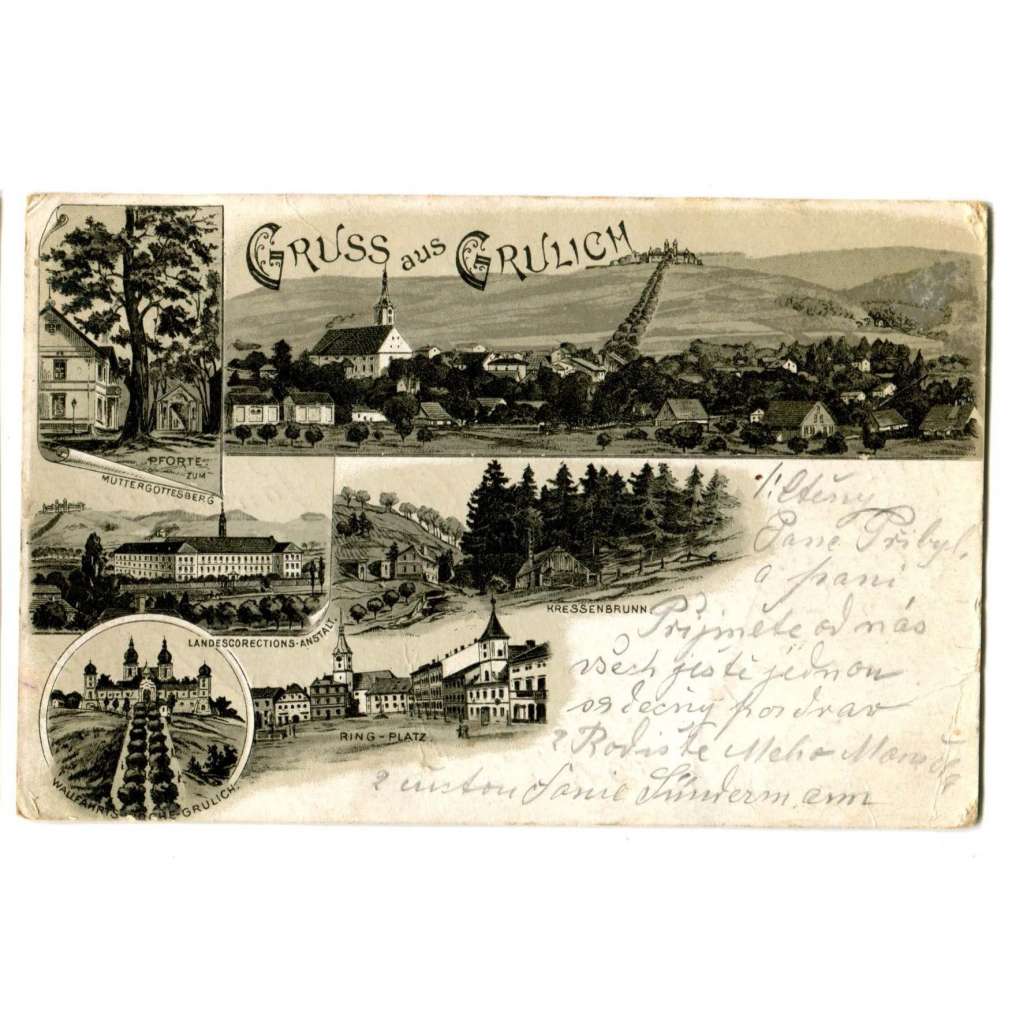 GRUSS aus GRULICH
PFORTE
ZUM
MUTTERGOTTESBERG
LANDESCORECTIONS-ANSTALT.
KRESSENBRUNN.
RING-PLATZ
WALLFAHRTSKIRCHE-GRULICH.
Pane Přibyl,
a paní
Přijměte od nás
všech ještě jednou
srdečný pozdrav
z Rodiště Meho
Fanie Sündermann